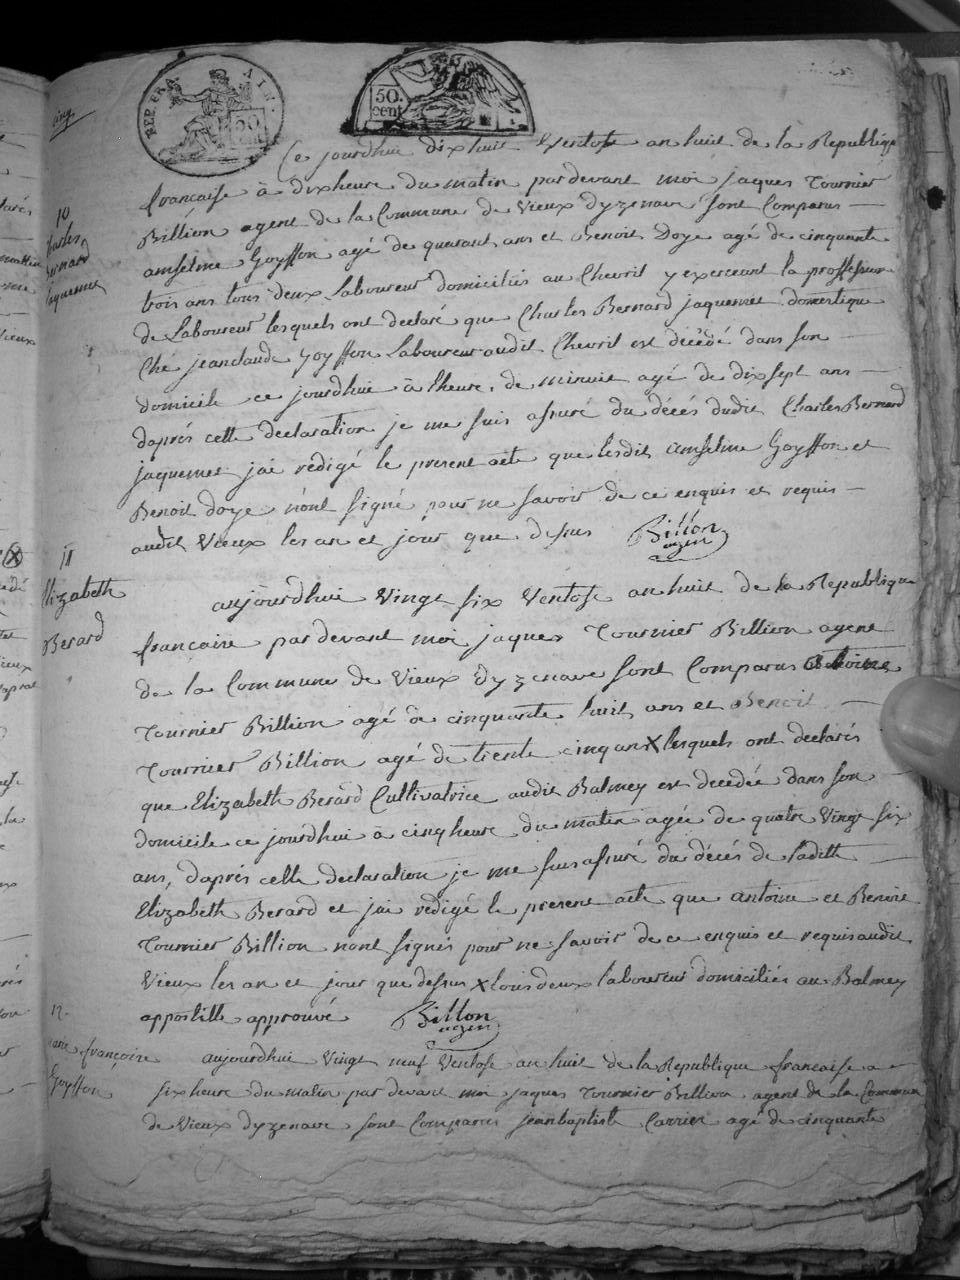 cinq
REP. FRA. AIN.
50 cent
50. cent
Ce jourdhui dixhuit Ventose an huit de la Republiq
francaise à dix heure du matin par devant moi jaques Tournier
Billion agent de la Commune de Vieux dyzenave sont Comparus —
10
Charles
Bernard
jaquemet
amselme Goyffon agé de quarant ans et Benoit Doye agé de cinquante
trois ans tous deux Laboureur domiciliés au Chevril y exerceant la proffession
de Laboureur lesquels ont declaré que Charles Bernard jaquemet domestique
Ché jeanclaude Goyffon Laboureur audit Chevril est décédé dans son —
domicile ce jourdhui à lheure de minuit agé de dix sept ans —
daprés cette declaration je me suis assuré du décés dudit Charles Bernard
jaquemet jai rédigé le present acte que lesdit amselme Goyffon et
Benoit doye nont signé pour ne savoir de ce enquis et requis —
audit Vieux les an et jour que dessus Billion
agen
11
Elizabeth
Berard
aujourdhui Vingt six Ventose an huit de la Republique
francaire par devant moi jaques Tournier Billion agent
de la Commune de Vieux dyzenave sont Comparus antoine
Tournier Billion agé de cinquante huit ans et Benoit —
Tournier Billion agé de trente cinq ans X lesquels ont declarés
que Elizabeth Berard Cultivatrice audit Balmey est decedée dans son —
domicile ce jourdhui à cinq heure du matin agée de quatre Vingt six
ans, daprés cette declaration je me suis assuré du décés de laditte —
Elizabeth Berard et jai rédigé le present acte que antoine et Benoit
Tournier Billion nont signés pour ne savoir de ce enquis et requis audit
Vieux les an et jour que dessus X tous deux laboureur domiciliés au Balmey
appostille approuvé Billion
agen
12.
marie françoise
Goyffon
aujourdhui Vingt neuf Ventose an huit de la Republique francaise a —
six heure du matin par devant moi jaques Tournier Billion agent de la Commun
de Vieux dyzenave sont Comparus jean baptiste Carrier agé de cinquante